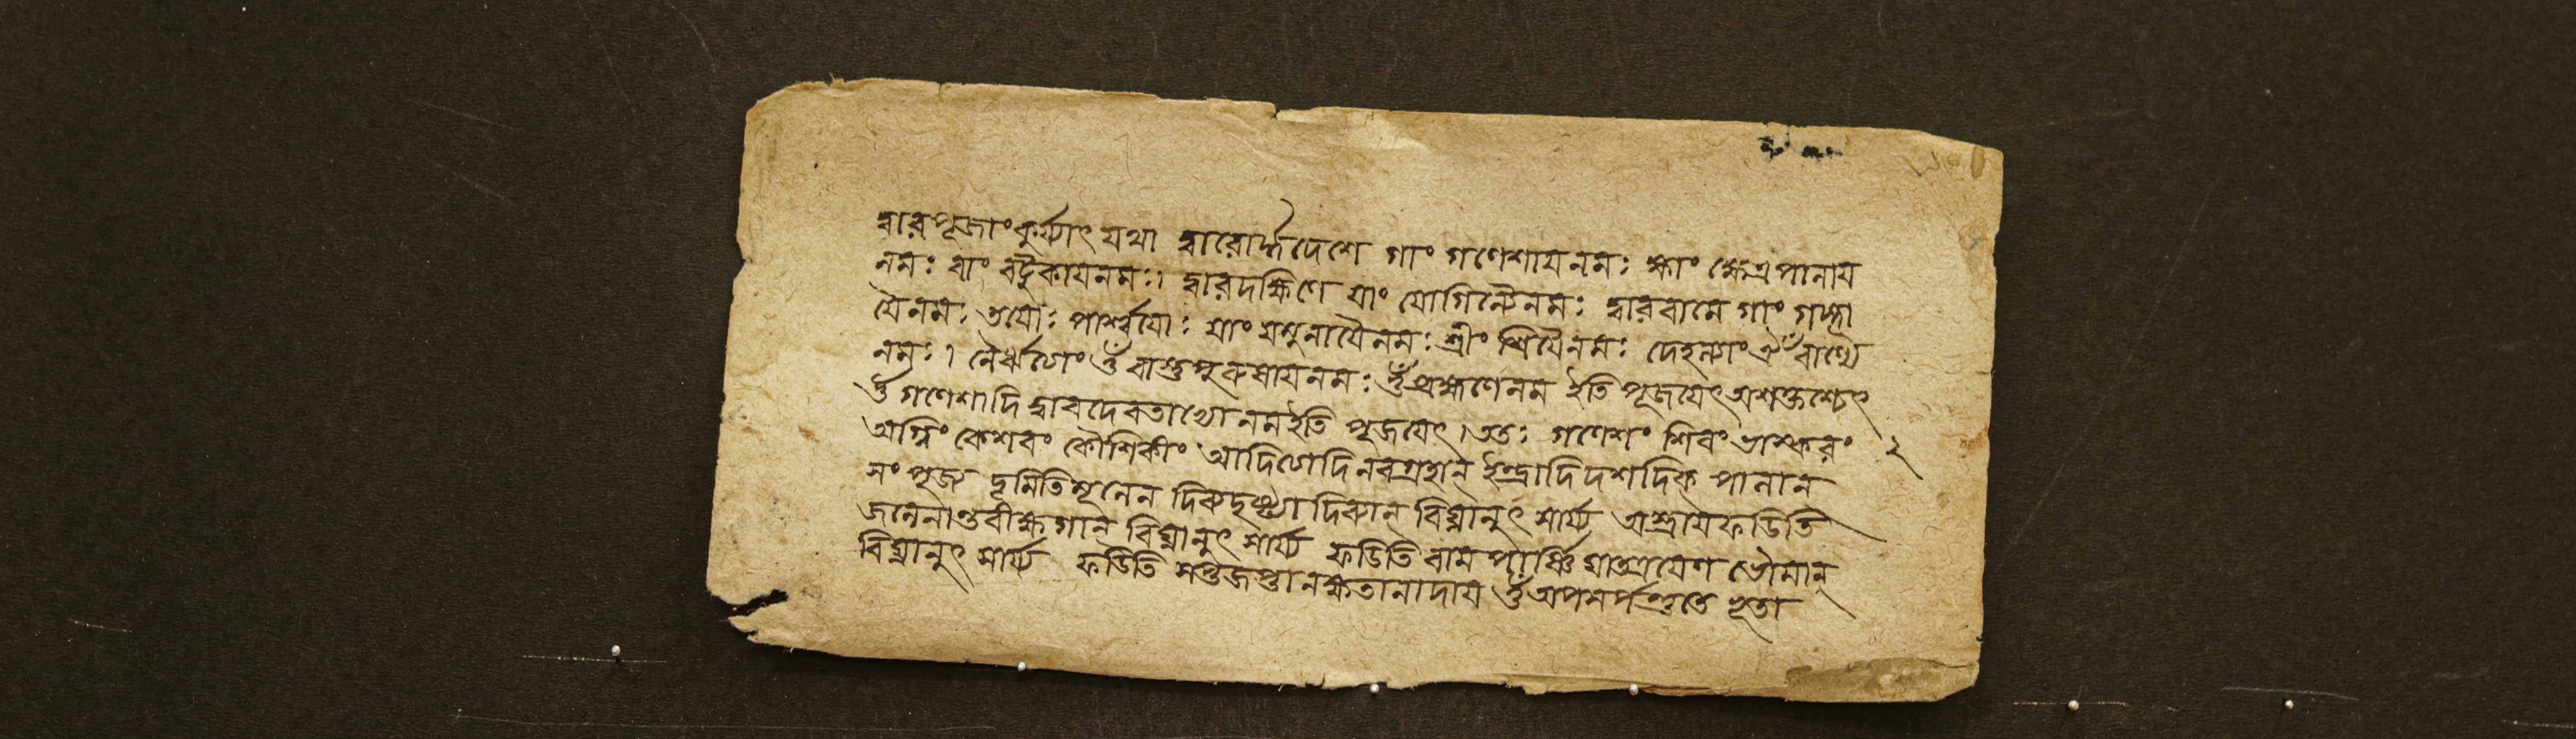 দ্বারপূজাং কুর্য্যাৎ যথা দ্বারোর্দ্ধদেশে গাং গণেশায়নমঃ ক্ষাং ক্ষেত্রপালায়
নমঃ বাং বটুকায়নমঃ। দ্বারদক্ষিণে যাং যোগিন্যৈনমঃ দ্বারবামে গাং গঙ্গা
য়ৈনমঃ তয়োঃ পার্শ্বয়োঃ যাং যমুনায়ৈনমঃ শ্রীং শ্রিয়ৈনমঃ দেহল্যাং ঐঁ বাণ্যৈ
নমঃ। নৈরৃত্যেং ওঁ বাস্তুপুরুষায়নমঃ ওঁ ব্রহ্মণেনম ইতি পূজয়েৎ অশক্তশ্চেৎ
ওঁ গণেশাদি দ্বারদেবতাভ্যো নমইতি পূজয়েৎ। ততঃ গণেশং শিবং ভাস্করং ২
অগ্নিং কেশবং কৌশিকীং আদিত্যাদি নবগ্রহান্ ইন্দ্রাদি দশদিক্ পালান্
সংপূজ্য হূমিতি দিব্যান্ বিঘ্নানুৎ সার্য্য অস্ত্রায়ফডিতি
জলেনান্তরীক্ষগান্ বিঘ্নানুৎ সার্য্য ফডিতি বামপার্ষ্ণি ঘাতত্রয়েণ ভৌমান্
বিঘ্নানুৎ সার্য্য ফডিতি সপ্তজপ্তানক্ষতানাদায় ওঁ অপসর্পন্তুতে ভূতা